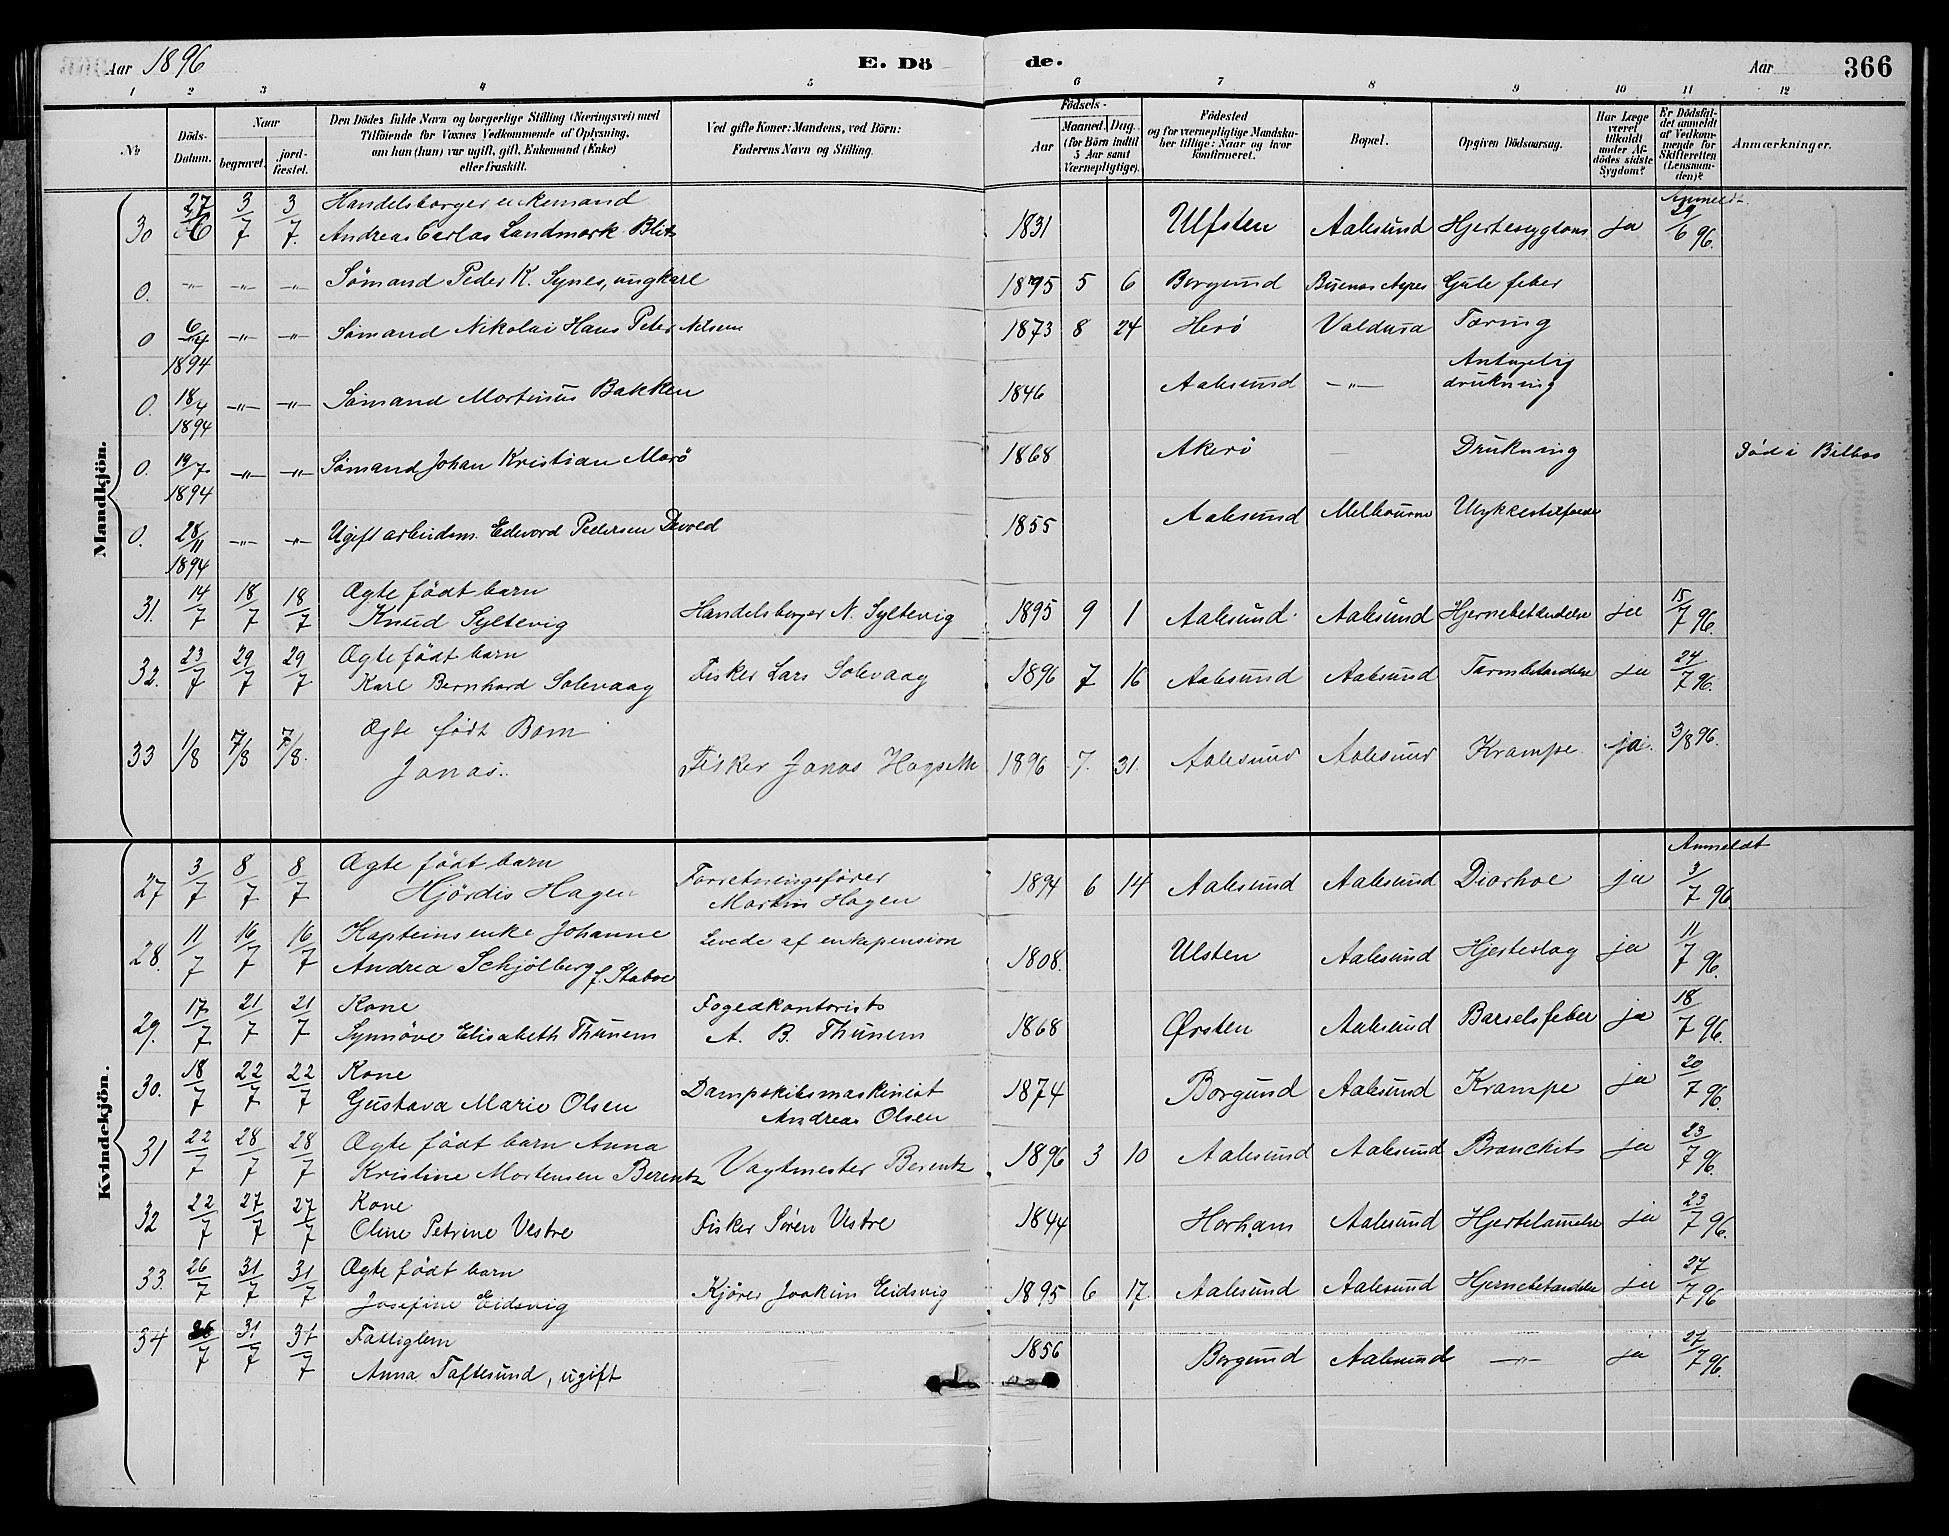 Aar 1896
E. Dö
de.
Aar
366
1 2 3 4 5 6 7 8 9 10 11 12
No
Döds-
Datum.
Naar
begravet.
jord-
fæstet.
Den Dödes fulde Navn og borgerlige Stilling (Næringsvei) med
Tilföiende for Voxnes Vedkommende af Oplysning,
om han (hun) var ugift, gift, Enkemand (Enke)
eller fraskilt.
Ved gifte Koner: Mandens, ved Börn:
Faderens Navn og Stilling.
Födsels-
Aar
Maaned. Dag.
(for Börn indtil
5 Aar samt
Værnepligtige).
Födested
og for værnepligtige Mandska-
ber tillige: Naar og hvor
konfirmeret.
Bopæl.
Opgiven Dödsaarsag.
Har Læge
været
tilkaldt
under Af-
dödes sidste
Sygdom?
Er Dödsfal-
det anmeldt
af Vedkom-
mende for
Skifteretten
(Lensman-
den)?
Anmærkninger.
Mandkjön.
Handelsborger enkemand Anmeldt
30 27/6 3/7 3/7. Andreas Carlos Landmark Blix 1831 Ulfsten Aalesund Hjertesygdom ja 29/6 96.
0. -"- -"- -"- Sømand Peder K. Synes, ungkarl 1895 5 6 Borgund Buenos Ayres Gule feber
0 6/4 1894 -"- -"- Sømand Nikolai Hans Peter Nilsen 1873 8 24 Herö Valdusa Tæring
Antagelig
0. 18/4 1894 -"- -"- Sømand Martinus Bakken 1846 Aalesund -"- drukning
0. 19/7 1894 -"- -"- Sømand Johan Kristian Morö 1868 Akerö — Drukning Död i Bilbao
0. 28/11 1894 -"- -"- Ugift arbeidsm. Edvard Pedersen Devold 1855 Aalesund Melbourne Ulykkestilfælde
Ægte födt barn
31. 14/7 18/7 18/7 Knud Syltevig Handelsborger N. Syltevig 1895 9 1 Aalesund Aalesund Hjernebetændelse ja 15/7 96.
Ægte födt barn
32. 23/7 29/7 29/7 Karl Bernhard Solevaag Fisker Lars Solevaag 1896 7 16 Aalesund Aalesund Tarmbetændelse ja 24/7 96.
Ægte födt Barn
33 1/8 7/8 7/8. Jonas. Fisker Jonas Hagseth 1896 7. 31. Aalesund Aalesund Krampe. ja. 3/8 96.
Kvindekjön.
Ægte födt barn Forretningsfører Anmeldt
27 3/7 8/7 8/7 Hjördis Hagen Martin Hagen 1894 6 14 Aalesund Aalesund Diarhoe ja 3/7 96.
Kapteins enke Johanne Levede af enkepension
28. 11/7 16/7 16/7 Andrea Schjölberg f. Staboe 1808. Ulsten Aalesund Hjerteslag ja 11/7 96.
Kone Fogedkontorist
29. 17/7 21/7 21/7 Synnöve Elisabeth Thunem A. B. Thunem 1868 Ørsten Aalesund Barselsfeber ja 18/7 96.
Kone Dampskibsmaskinist
30. 18/7 22/7 22/7 Gustava Marie Olsen Andreas Olsen 1874 Borgund Aalesund Krampe ja 20/7 96.
Ægte födt barn Anna
31 22/7 28/7 28/7 Kristine Mortensen Berentz Vagtmester Berentz 1896 3 10 Aalesund Aalesund Bronchits ja 23/7 96.
Kone
32 22/7 27/7 27/7 Oline Petrine Vestre Fisker Sören Vestre 1844 Horham Aalesund Hjertelamelse ja 23/7 96.
Ægte födt barn
33. 26/7 31/7 31/7 Josefine Eidsvig Kjörer Joakim Eidsvig 1895 6 17. Aalesund Aalesund Hjernebetændelse ja 27/7 96
Fattiglem
34 26/7 31/7 31/7 Anna Taftesund, ugift 1856 Borgund Aalesund -"- ja 27/7 96.